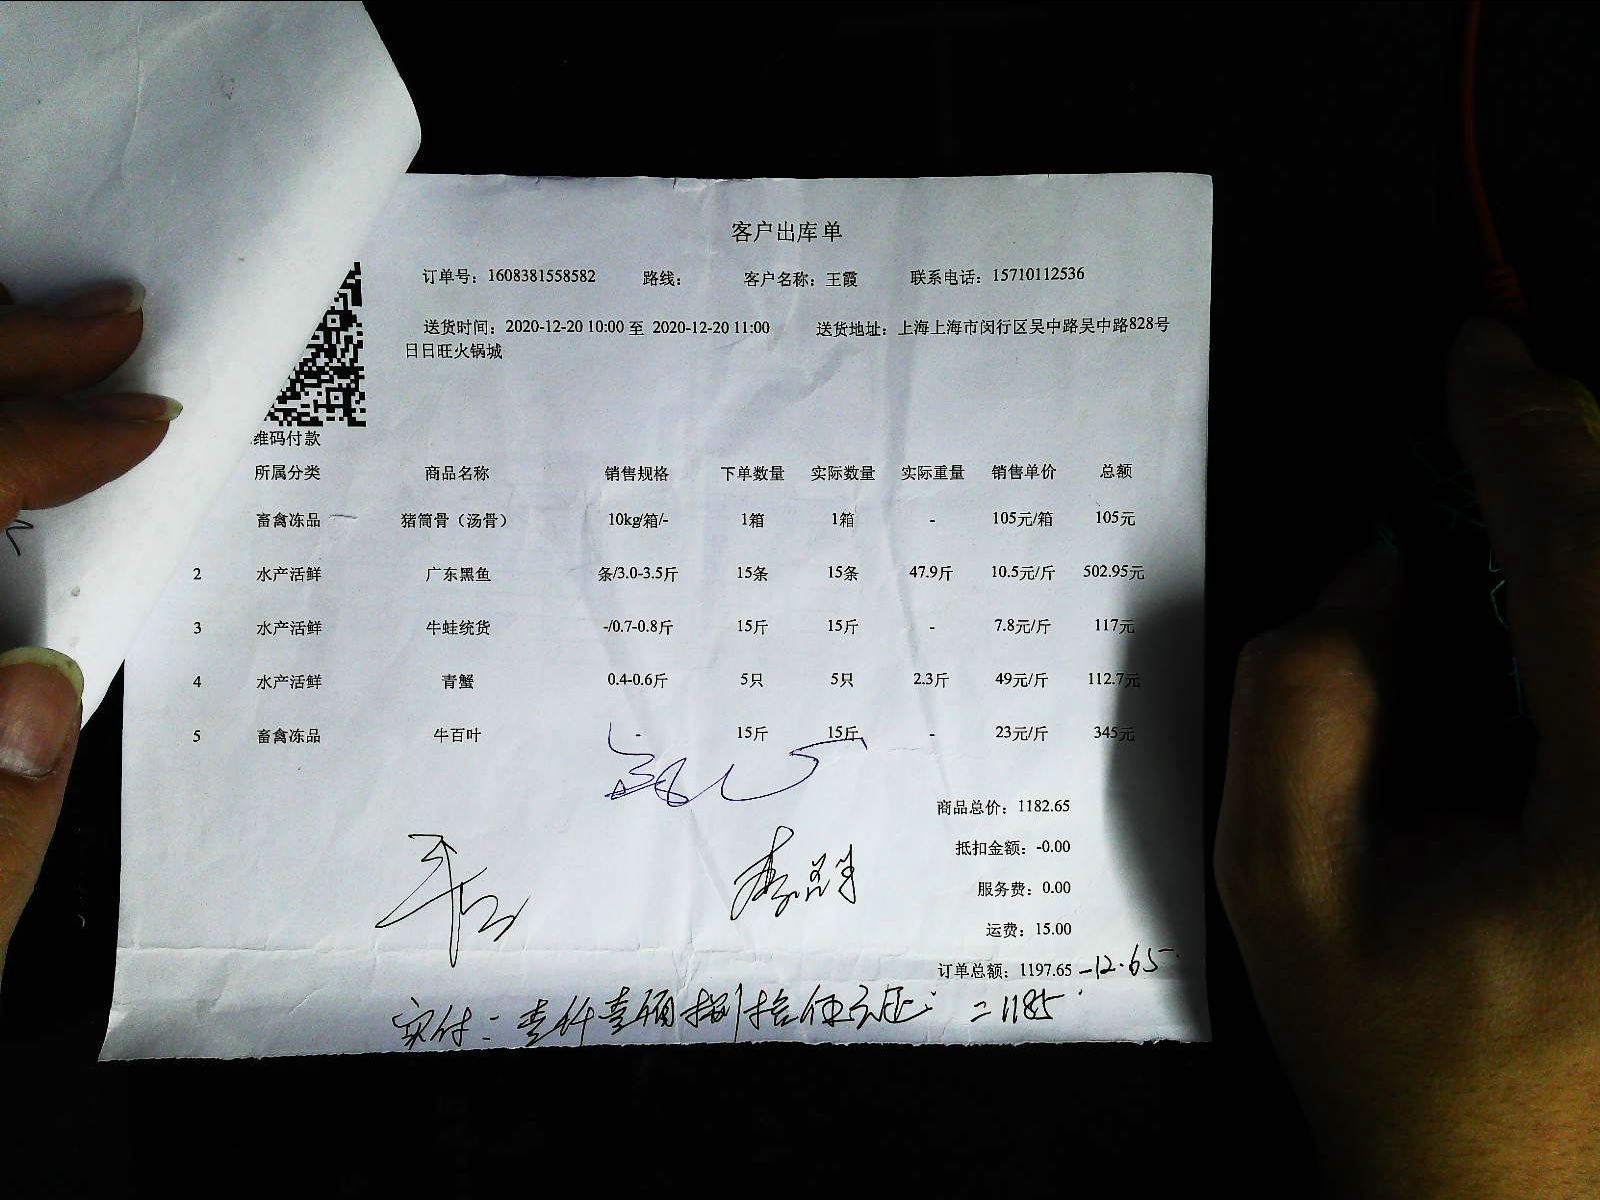 客户出库单
订单号：1608381558582 路线： 客户名称：王霞 联系电话：15710112536
送货时间：2020-12-20 10:00 至 2020-12-20 11:00 送货地址：上海上海市闵行区吴中路吴中路828号
日日旺火锅城
维码付款
所属分类 商品名称 销售规格 下单数量 实际数量 实际重量 销售单价 总额
畜禽冻品 猪筒骨（汤骨） 10kg/箱/- 1箱 1箱 - 105元/箱 105元
2 水产活鲜 广东黑鱼 条/3.0-3.5斤 15条 15条 47.9斤 10.5元/斤 502.95元
3 水产活鲜 牛蛙统货 -/0.7-0.8斤 15斤 15斤 - 7.8元/斤 117元
4 水产活鲜 青蟹 0.4-0.6斤 5只 5只 2.3斤 49元/斤 112.7元
5 畜禽冻品 牛百叶 - 15斤 15斤 - 23元/斤 345元
商品总价：1182.65
抵扣金额：-0.00
服务费：0.00
运费：15.00
订单总额：1197.65 -12.65
实付：壹仟壹佰捌拾伍元正 =1185